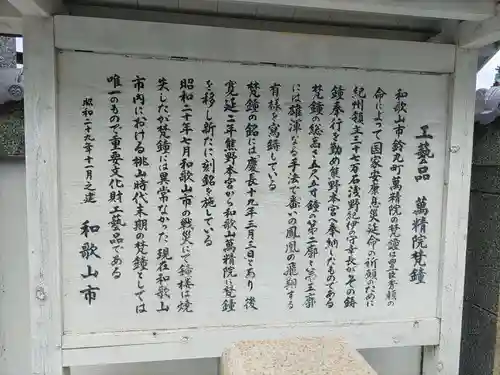 工藝品 萬精院梵鐘
和歌山市鈴丸町萬精院の梵鐘は豊臣秀頼の
命によって国家安康息災延命の祈願のために
紀州領主三十七万石浅野紀伊の守幸長がその鋳
鐘奉行を勤め熊野本宮へ奉納したものである
梵鐘の総高さ五尺五寸鐘の第二廓と第三廓
には雄渾なる手法で番いの鳳凰の飛翔する
有様を寫鋳している
梵鐘の銘には慶長十九年三月三日とあり 後
寛延二年熊野本宮から和歌山萬精院に梵鐘
を移し新たに刻銘を施している
昭和二十年七月和歌山市の戦災にて鐘楼は焼
失したが梵鐘には異常なかった 現在和歌山
市内における桃山時代末期の梵鐘としては
唯一のもので重要文化財工藝品である
昭和二十九年十一月之建 和歌山市